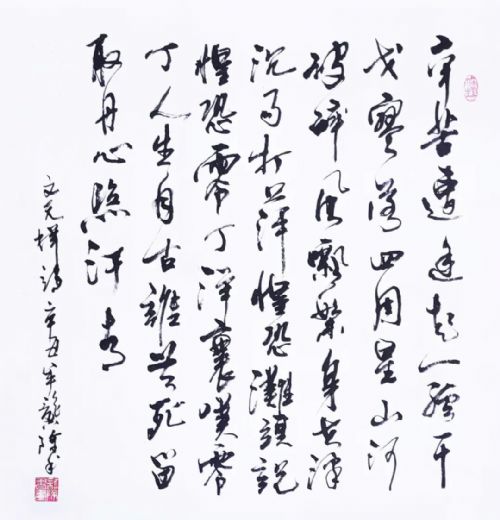 辛苦遭逢起一經干
戈寥落四周星山河
破碎風飄絮身世浮
沉雨打萍惶恐灘頭說
惶恐零丁洋裏嘆零
丁人生自古誰無死留
取丹心照汗青
文天祥詩辛丑年龔